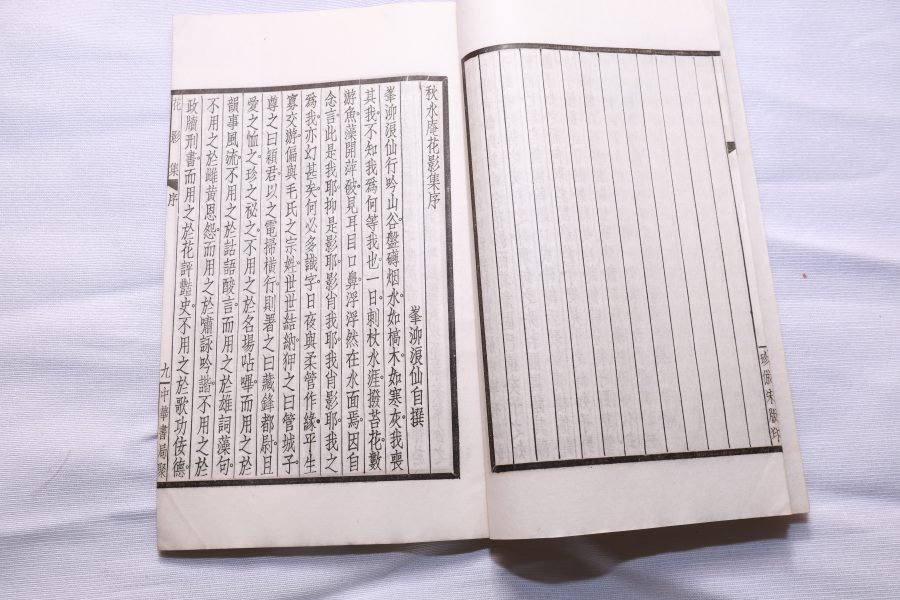 珍倣宋版印
秋水庵花影集序
峯泖浪仙自撰
峯泖浪仙行吟山谷盤礴烟水如槁木如寒灰我喪
其我不知我爲何等我也一日刺杖水涯撥苔花數
游魚藻開萍破見耳目口鼻浮浮然在水面焉因自
念言此是我耶抑是影耶影肖我耶我肖影耶我之
爲我亦幻甚矣何必多識字日夜與柔管作緣平生
寡交游偏與毛氏之宗姓世世結納狎之曰管城子
尊之曰穎君以之電掃橫行則署之曰藏鋒都尉且
愛之恤之珍之祕之不用之於名場呫嗶而用之於
韻事風流不用之於詁語酸言而用之於雄詞藻句
不用之於雌黃恩怨而用之於嘯詠吟諧不用之於
政牘刑書而用之於花評豔史不用之於歌功佞德
花影集 序
九 中華書局聚